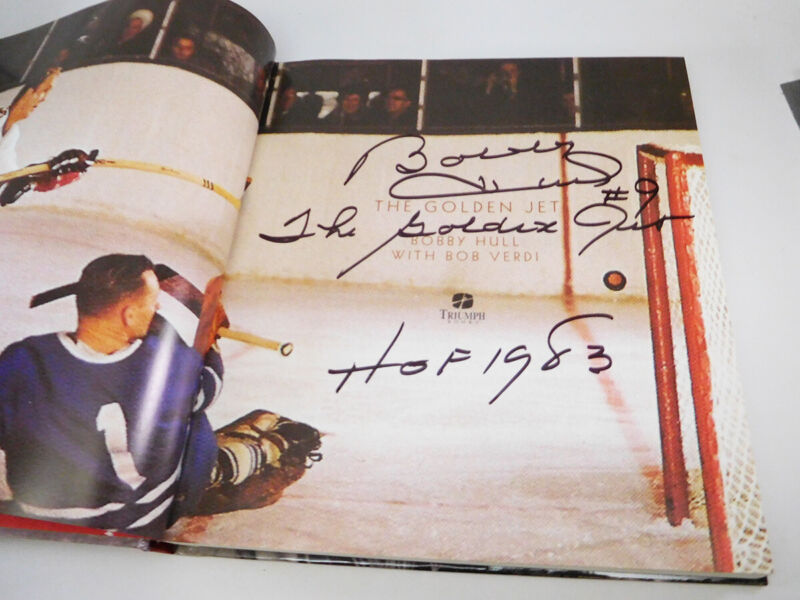 Bobby Hull #9
THE GOLDEN JET
The Golden Jet
BOBBY HULL
WITH BOB VERDI
TRIUMPH
BOOKS
HOF 1983
1